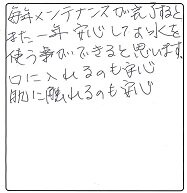 毎年メンテナンスが完了すると
また一年安心してお水を
使う事ができると思います
口に入れるのも安心
肌に触れるのも安心